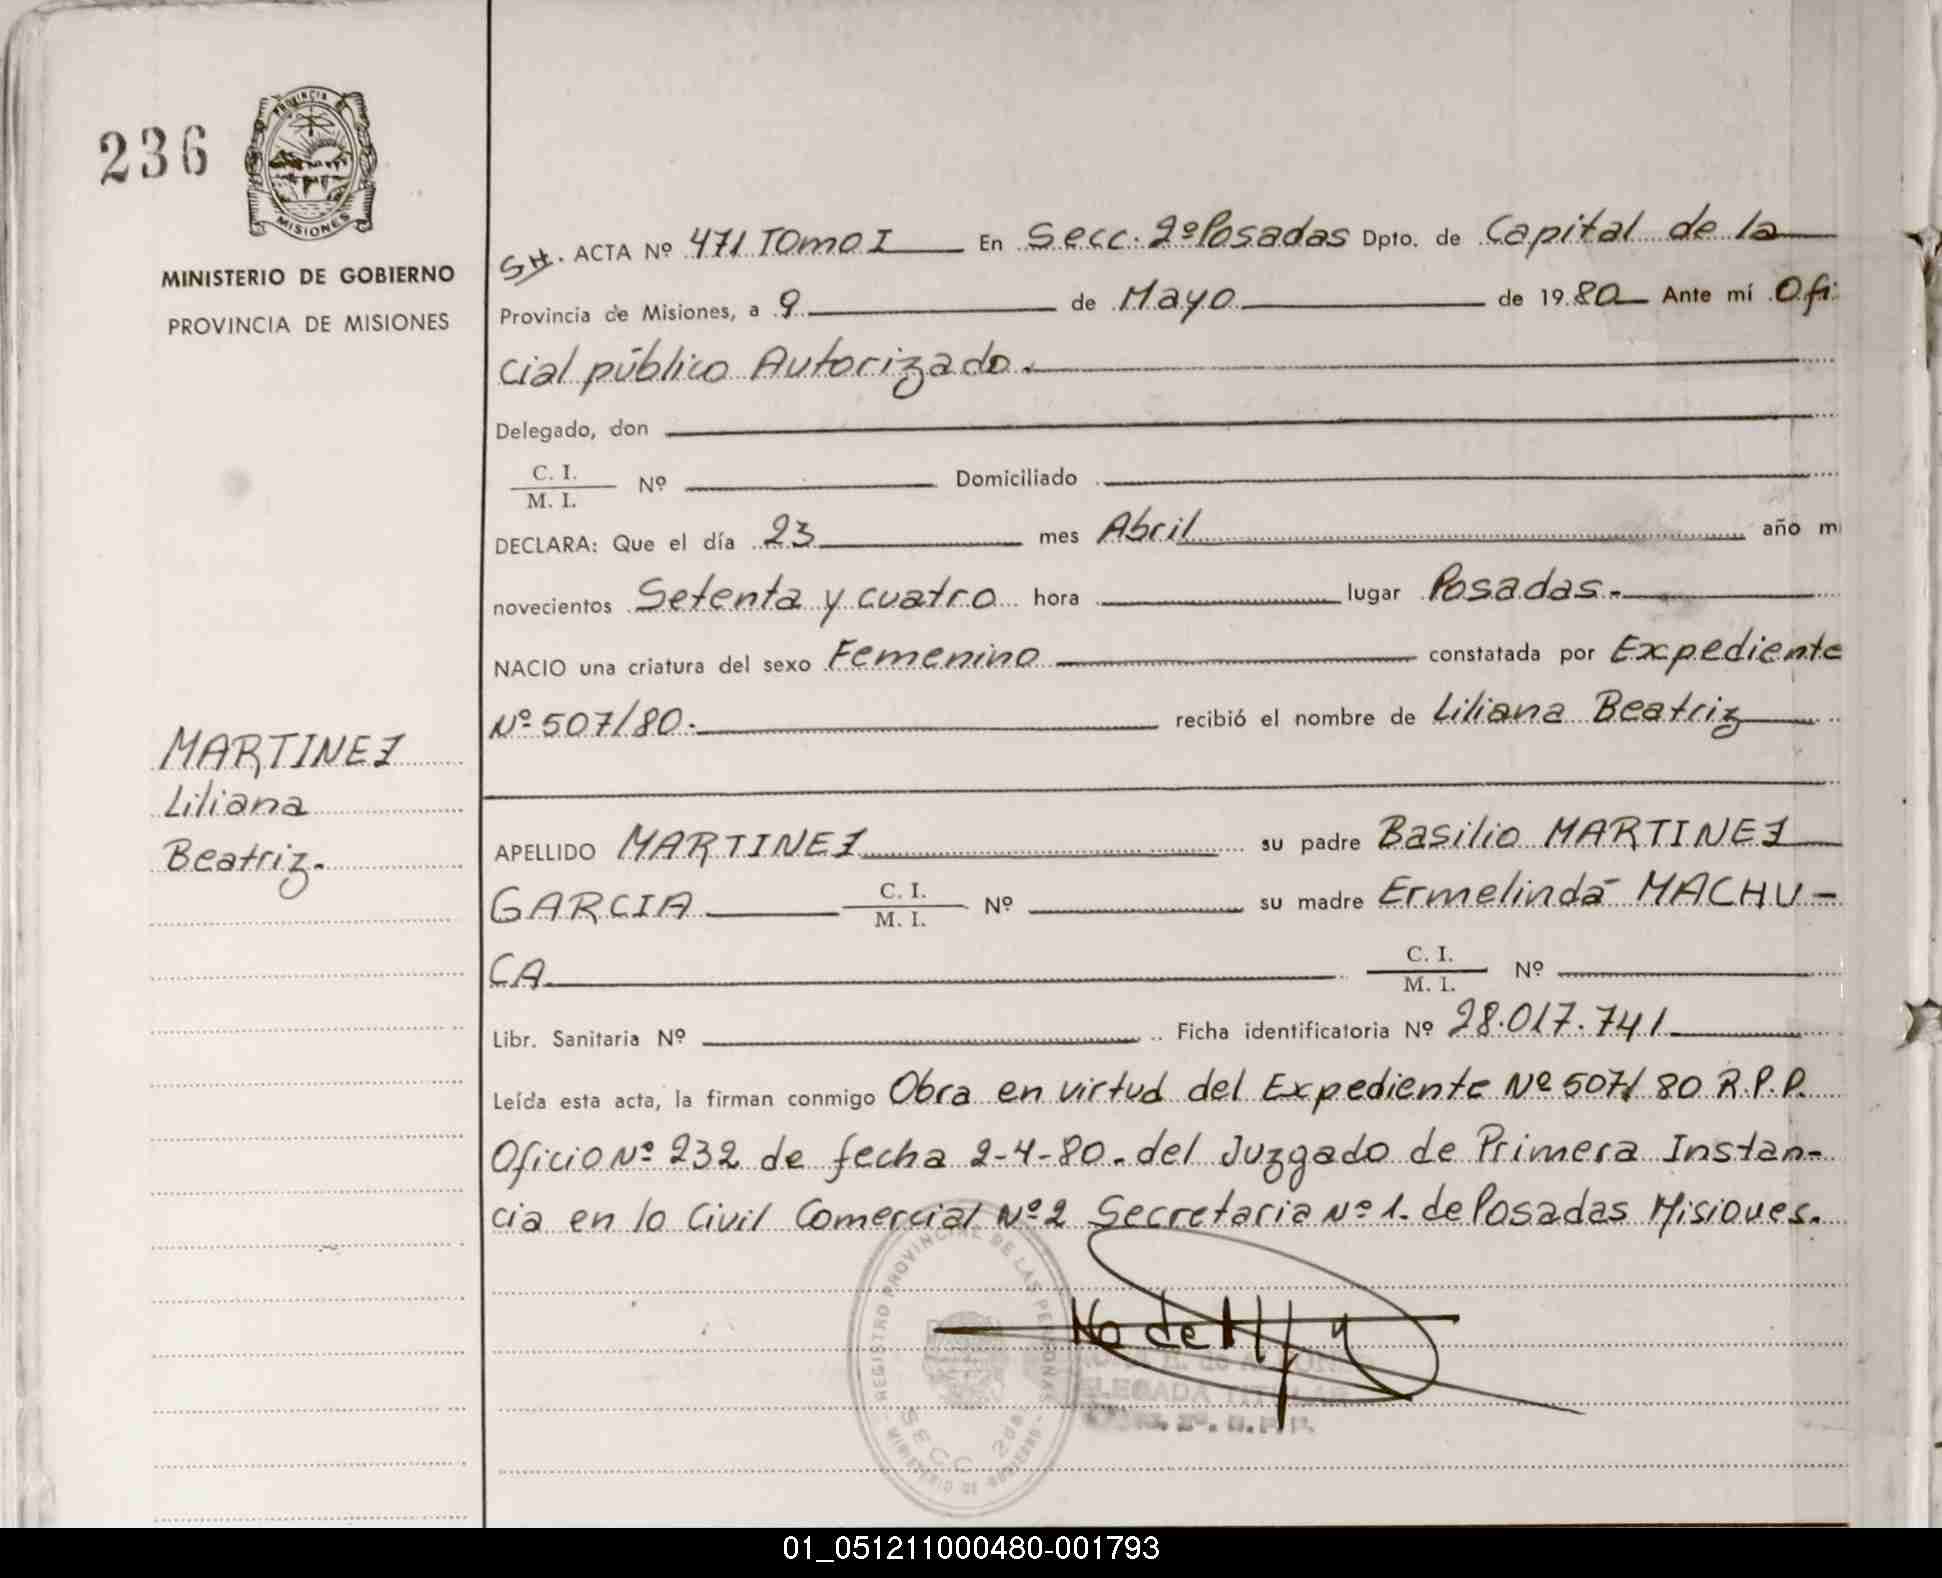 236
PROVINCIA DE
MISIONES
MINISTERIO DE GOBIERNO
PROVINCIA DE MISIONES
MARTINEZ
Liliana
Beatriz.
SH. ACTA Nº 471 TOmO I En Secc. 2º Posadas Dpto. de Capital de la
Provincia de Misiones, a 9 de Mayo de 1980 Ante mí Ofi
cial público Autorizado.
Delegado, don
C. I.
M. I. Nº Domiciliado
DECLARA: Que el día 23 mes Abril año m
novecientos Setenta y cuatro hora lugar Posadas.-
NACIO una criatura del sexo Femenino constatada por Expediente
Nº 507/80. recibió el nombre de Liliana Beatriz
APELLIDO MARTINEZ su padre Basilio MARTINEZ
GARCIA C. I. M. I. Nº su madre Ermelinda MACHU-
CA C. I. M. I. Nº
Libr. Sanitaria Nº Ficha identificatoria Nº 28.017.741
Leída esta acta, la firman conmigo Obra en virtud del Expediente Nº 507/80 R.P.P.
Oficio Nº 232 de fecha 2-4-80. del Juzgado de Primera Instan-
cia en lo Civil Comercial Nº 2 Secretaria Nº 1. de Posadas Misiones.
REGISTRO PROVINCIAL DE LAS PERSONAS
SECC. 2da
MINISTERIO DE GOBIERNO
DELEGADA TITULAR
01_051211000480-001793